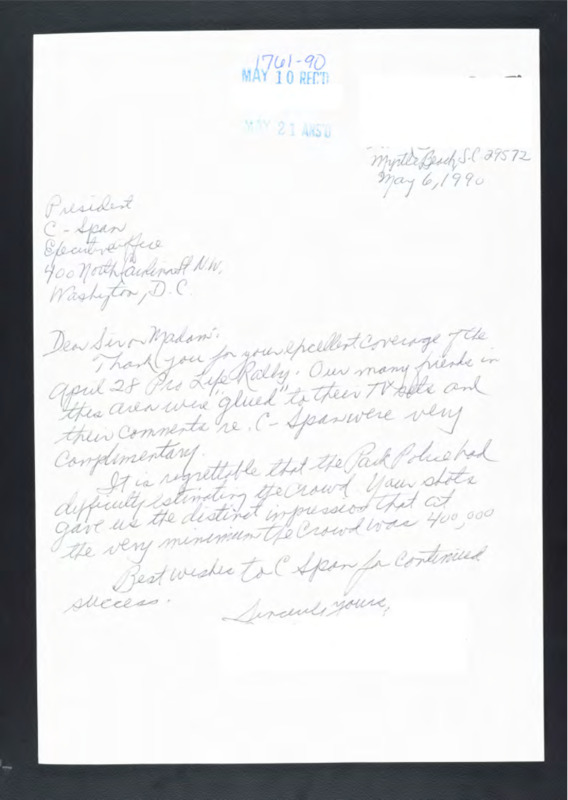 1761-90
MAY 10 REC'D
MAY 21 ANS'D
Myrtle Beach, S.C 29572
May 6, 1990
President
C-Span
Executive Office
400 North St N.W.
Washington, D.C.
Dear Sir or Madam:
Thank you for your excellent coverage of the
April 28 Pro Life Rally. Our many friends in
this area were "glued" to their TV sets and
their comments re. C-Span were very
complimentary.
It is regrettible that the Park Police had
difficulty estimating the crowd. Your shots
gave us the distinct impression that at
the very minimum the crowd was 400,000
Best wishes to C Span for continued
success.
Sincerely yours,